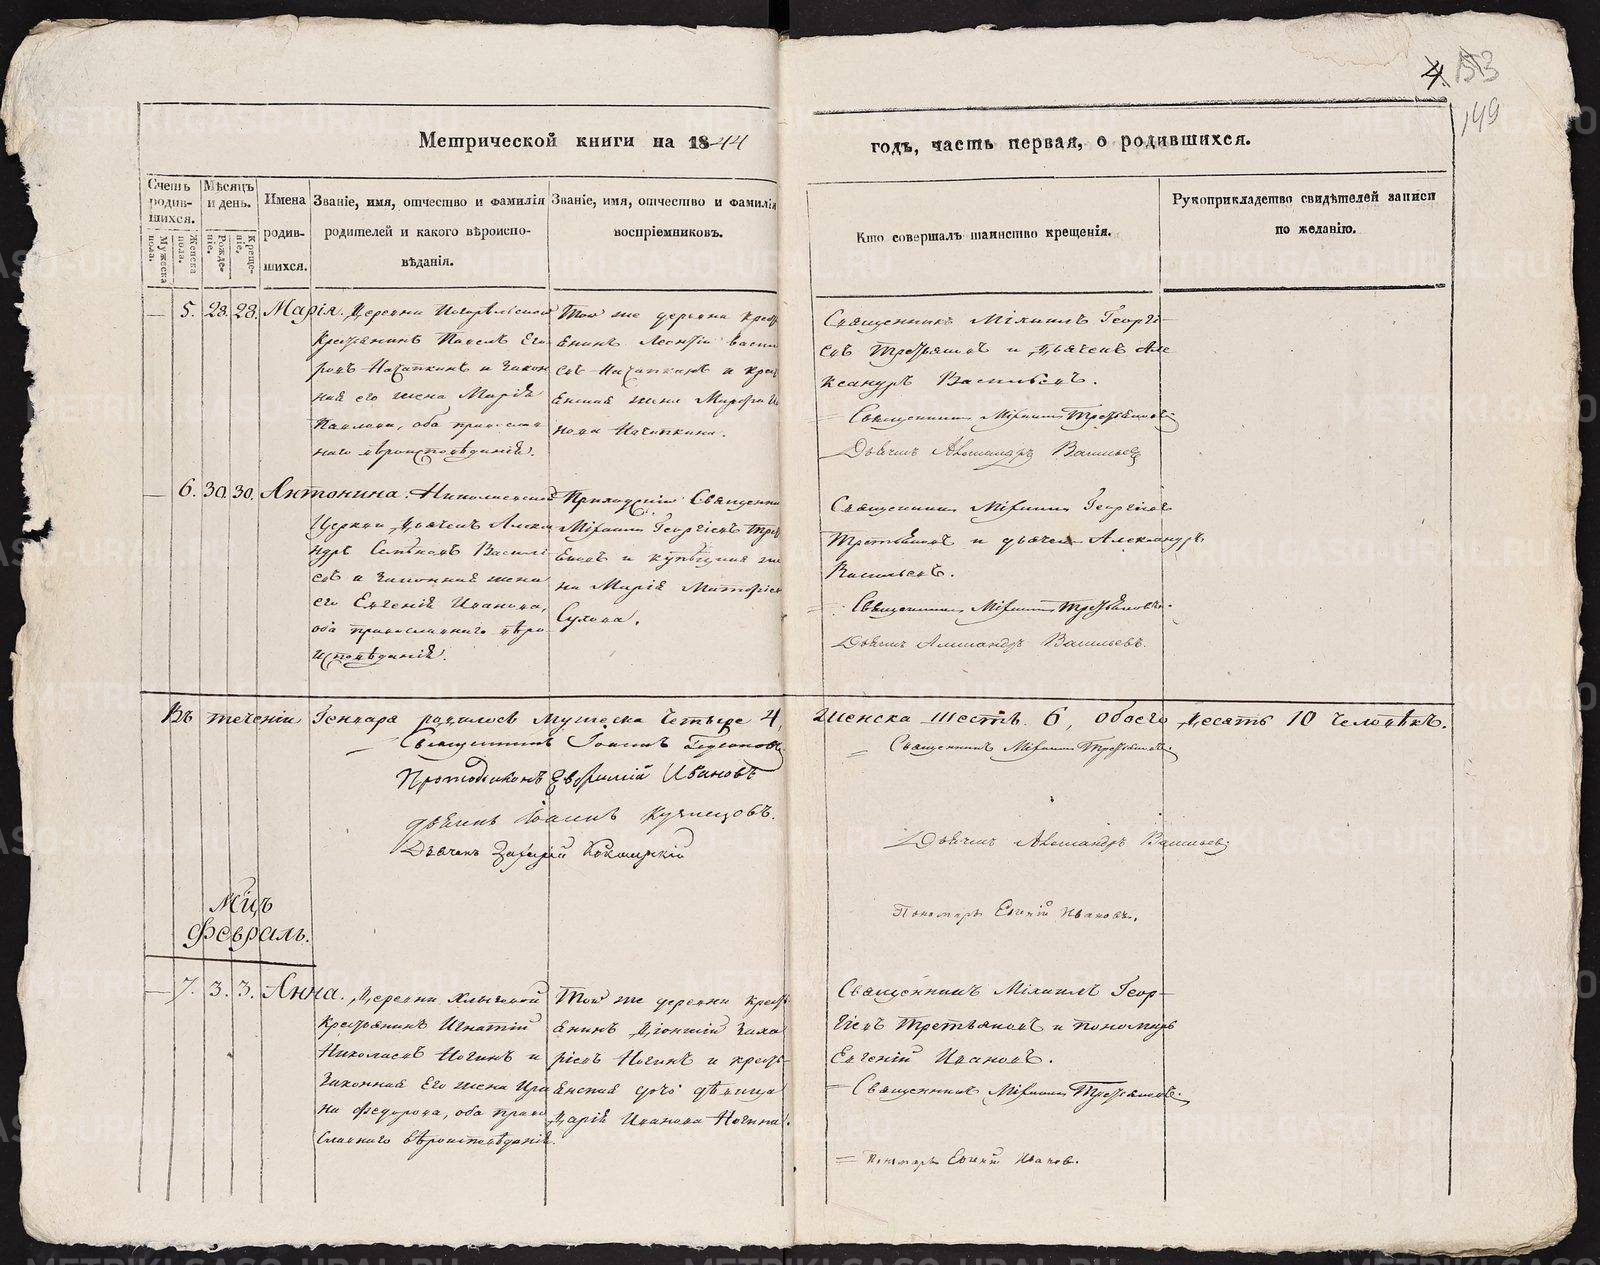 4 153
149
Метрической книги на 1844
годъ, часть первая, о родившихся.
Счетъ родив-шихся.
Мужеска пола.
Женска пола.
Мѣсяцъ и день.
Рожде-нiе.
Креще-нiе.
Имена
родив-
шихся.
Званiе, имя, отчество и фамилiя
родителей и какого вѣроиспо-
вѣданiя.
Званiе, имя, отчество и фамилiя
воспрiемниковъ.
Кто совершалъ таинство крещенiя.
Рукоприкладство свидѣтелей записи
по желанiю.
5. 28. 28. Марiя. Деревни
Крестьянинъ Павелъ Его-
ровъ и закон
ная его жена Марiя
Павлова, оба православ
наго вѣроисповѣданiя.
Той же деревни крест
янинъ Леонтiй Васил
евъ и крест
янская жена
нова
Священникъ Михаилъ Георгi-
евъ Третьяковъ и Дьячекъ Але
ксандръ Васильевъ.
Священникъ Михаилъ Третьяковъ.
Дьячекъ Александръ Васильевъ
6. 30. 30. Антонина. Николаевской
Церкви Дьячекъ Алекса
ндръ Васильi
евъ и законная жена
его Евгенiя Иванова,
оба православнаго вѣро
исповѣданiя.
Приходскiй Священни
Михаилъ Георгiевъ Треть
яковъ и купецкая же
на Марiя
Сухова.
Священникъ Михаилъ Георгiевъ
Третьяковъ и дьячекъ Александръ
Васильевъ.
Священникъ Михаилъ Третьяковъ.
Дьячекъ Александръ Васильевъ.
Въ теченiи Генваря родилось мужеска четыре 4, женска шесть 6, обоего десять 10 человѣкъ.
Священникъ Iоаннъ
Протодiаконъ Евфимiй Ивановъ
дьячекъ Iоаннъ Кузнецовъ.
Дьячекъ Захарiй
Священникъ Михаилъ Третьяковъ.
Дьячекъ Александръ Васильевъ
Пономарь Евгенiй Ивановъ.
Мцъ
Февраль.
7. 3. 3. Анна. Деревни
Крестьянинъ Игнатiй
Николаевъ Ногинъ и
Законная Его жена Ири
на Федорова, оба право
славнаго вѣроисповѣданiя.
Той же деревни крест
янинъ Дiонисiй Заха
рiевъ Ногинъ и крест-
янская дочь дѣвица
Дарiя Иванова Ногина.
Священникъ Михаилъ Геор-
гiевъ Третьяковъ и пономарь
Евгенiй Ивановъ.
Священникъ Михаилъ Третьяковъ.
Пономарь Евгенiй Ивановъ.
METRIKI.GASO-URAL.RU